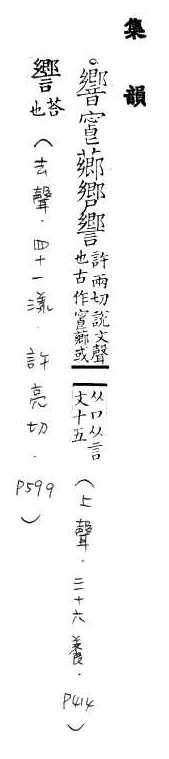 集韻
。響薌
許兩切說文聲
也古作薌或
从口从言
文十五
(上聲．三十六養．P414)
荅
也
(去聲．四十一漾．許亮切．P599)